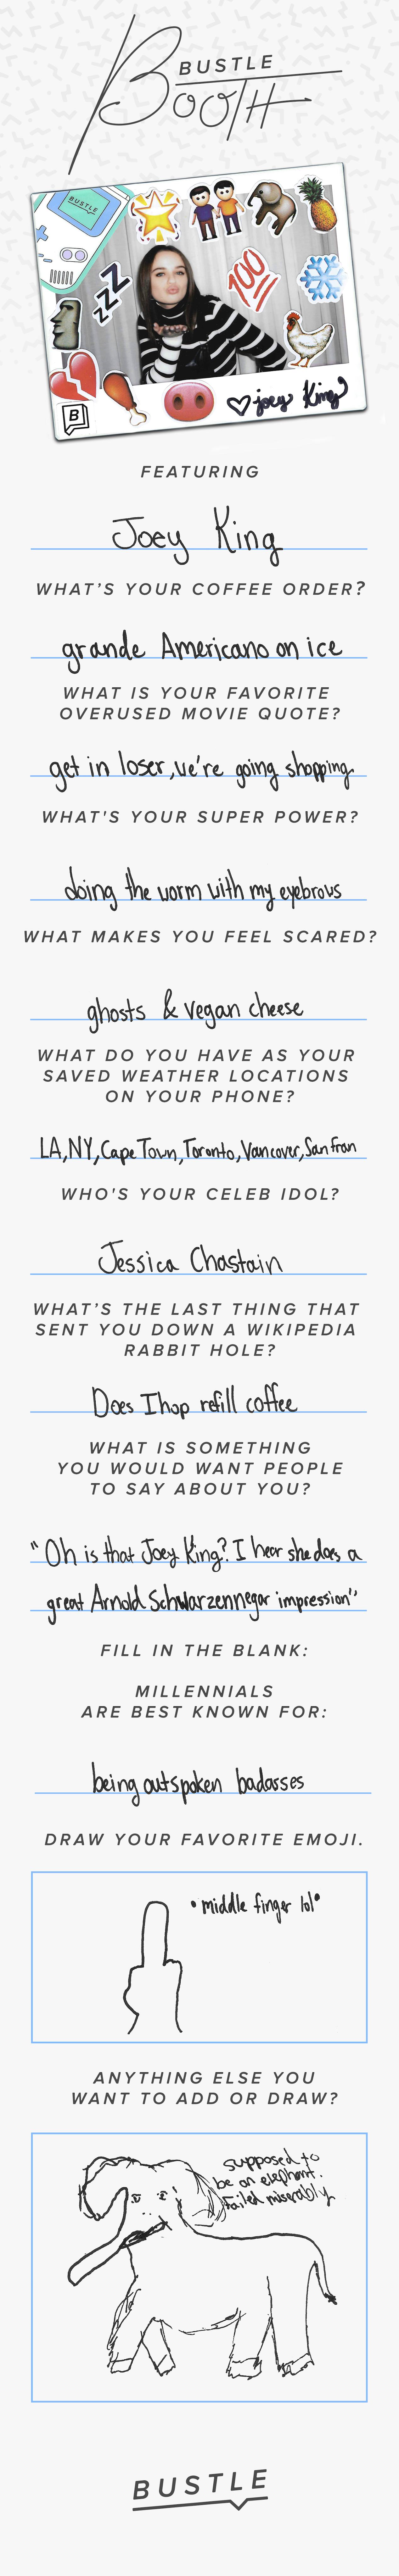 BUSTLE
BOOTH
BUSTLE
ZZZ
100
B
joey King
FEATURING
Joey King
WHAT'S YOUR COFFEE ORDER?
grande Americano on ice
WHAT IS YOUR FAVORITE
OVERUSED MOVIE QUOTE?
get in loser, we're going shopping
WHAT'S YOUR SUPER POWER?
doing the worm with my eyebrows
WHAT MAKES YOU FEEL SCARED?
ghosts & vegan cheese
WHAT DO YOU HAVE AS YOUR
SAVED WEATHER LOCATIONS
ON YOUR PHONE?
LA, NY, Cape Town, Toronto, Vancover, San fran
WHO'S YOUR CELEB IDOL?
Jessica Chastain
WHAT'S THE LAST THING THAT
SENT YOU DOWN A WIKIPEDIA
RABBIT HOLE?
Does Ihop refill coffee
WHAT IS SOMETHING
YOU WOULD WANT PEOPLE
TO SAY ABOUT YOU?
"Oh is that Joey King? I hear she does a
great Arnold Schwarzennegar impression"
FILL IN THE BLANK:
MILLENNIALS
ARE BEST KNOWN FOR:
being outspoken badasses
DRAW YOUR FAVORITE EMOJI.
•middle finger lol•
ANYTHING ELSE YOU
WANT TO ADD OR DRAW?
supposed to
be an elephant.
failed miserably
BUSTLE